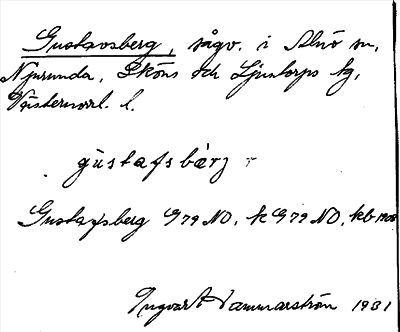 Gustavsberg, sågv. i Alnö sn,
Njurunda, Sköns och Ljustorps tg,
Västernorrl. l.
gùstafsbær̀j
Gustafsberg G 79 NO, k G 79 NO, kb 1908
Ingvar Hammarström 1931